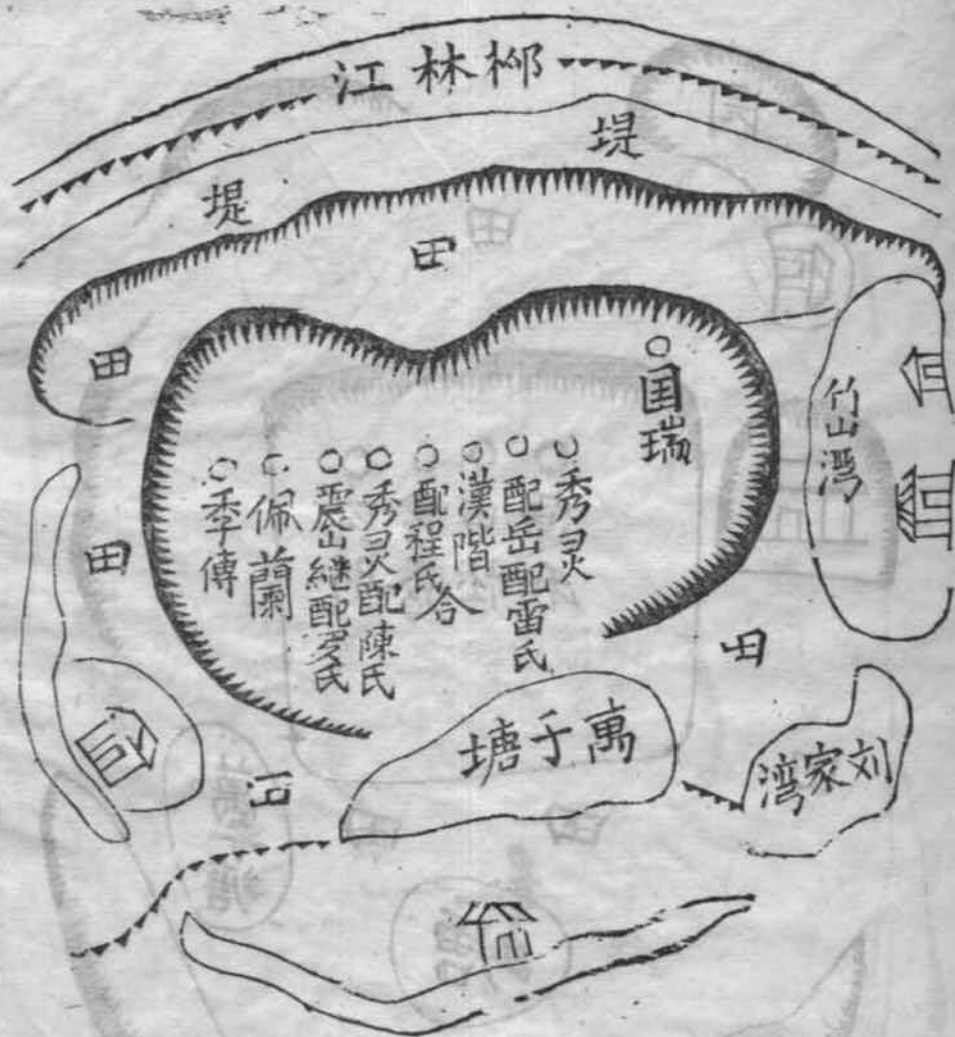 柳林江
堤
堤
田
田
田
囯瑞
竹山灣
秀灵
配岳配雷氏
漢階
配程氏
合
秀灵配陳氏
震山継配罗氏
佩蘭
季傳
田
萬于塘
刘家湾
田